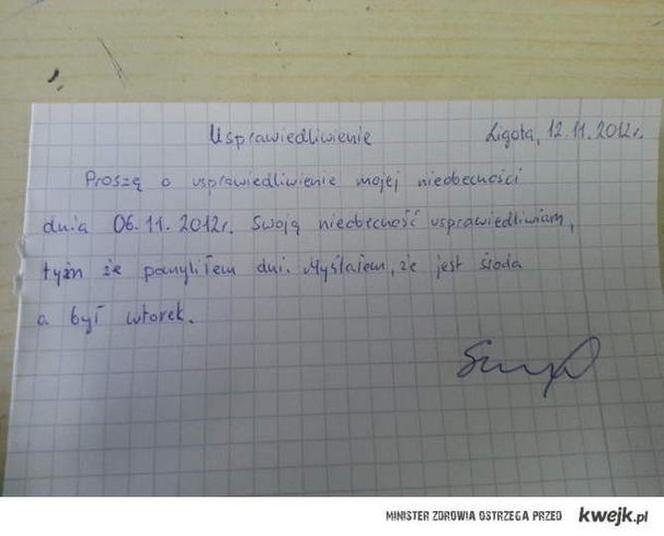 Usprawiedliwienie Ligota, 12.11.2012r.
Proszę o usprawiedliwienie mojej nieobecności
dnia 06.11.2012r. Swoją nieobecność usprawiedliwiam,
tym że pomyliłem dni. Myślałem, że jest środa
a był wtorek.
MINISTER ZDROWIA OSTRZEGA PRZED kwejk.pl